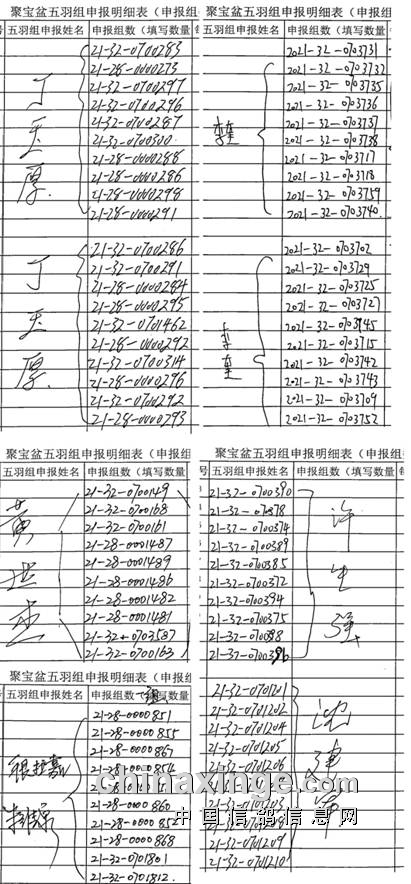 聚宝盆五羽组申报明细表（申报组
五羽组申报姓名 申报组数（填写数量
21-32-0700283
21-28-0000273
21-32-0700297
21-32-0700296
21-32-0700287
21-32-0700300
21-28-0000288
21-28-0000286
21-28-0000298
21-28-0000291
丁玉厚
21-32-0700286
21-32-0700291
21-28-0000284
21-28-0000295
21-32-0701462
21-28-0000292
21-32-0700314
21-28-0000276
21-32-0700292
21-28-0000293
丁玉厚
聚宝盆五羽组申报明细表（申报组
五羽组申报姓名 申报组数（填写数量
2021-32-0703731
2021-32-0703732
2021-32-0703735
2021-32-0703736
2021-32-0703737
2021-32-0703738
2021-32-0703717
2021-32-0703718
2021-32-0703759
2021-32-0703740
2021-32-0703702
2021-32-0703729
2021-32-0703725
2021-32-0703727
2021-32-0703745
2021-32-0703715
2021-32-0703742
2021-32-0703743
2021-32-0703709
2021-32-0703752
聚宝盆五羽组申报明细表（申报
五羽组申报姓名 申报组数（填写数量
21-32-0700149
21-32-0700168
21-32-0700161
21-28-0001487
21-28-0001489
21-28-0001486
21-28-0001482
21-28-0001481
21-32-0703587
21-32-0700163
黄世杰
聚宝盆五羽组申报明细表（申报
号 五羽组申报姓名 申报组数（填写数量
21-32-0700390
21-32-0700374
21-32-0700389
21-32-0700385
21-32-0700372
21-32-0700394
21-32-0700375
许生强
聚宝盆五羽组申报明细表（申报
五羽组申报姓名 申报组数 填写数量
21-28-0000851
21-28-0000855
21-28-0000867
21-28-0000854
21-28-0000860
21-28-0000868
21-32-0701801
21-32-0701812
21-32-0701201
21-32-0701202
21-32-0701204
21-32-0701205
21-32-0701206
21-32-0701203
21-32-0701209
21-32-0701210
沈建军
chinaxinge.com
中国信鸽信息网